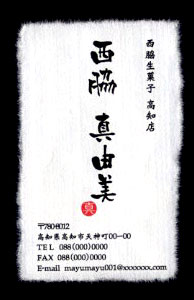 西脇生菓子 高知店
西脇 真由美
真
〒780-8012
高知県高知市天神町00-00
TEL 088(000)0000
FAX 088(000)0000
E-mail mayumayu001@xxxxxxx.com